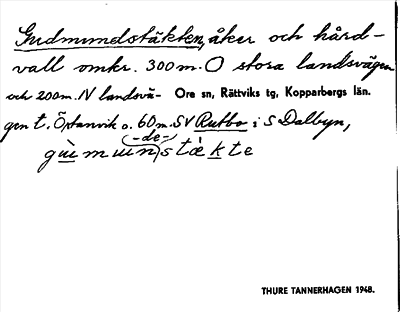 Gudmundstäkten, åker och hård-
vall omkr. 300 m. O stora landsvägen
och 200 m. N landsvä- Ore sn, Rättviks tg, Kopparbergs län.
gen t. Östanvik o. 60 m. SV Rutbo i S Dalbyn,
-de-
THURE TANNERHAGEN 1948.